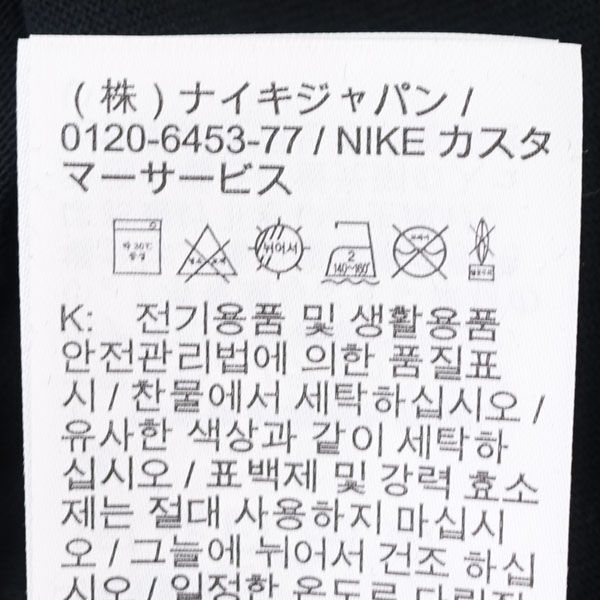 (株)ナイキジャパン /
0120-6453-77 / NIKE カスタ
マーサービス
약 30℃
중성
뉘어서
2
140~160℃
K: 전기용품 및 생활용품
안전관리법에 의한 품질표
시 / 찬물에서 세탁하십시오 /
유사한 색상과 같이 세탁하
십시오 / 표백제 및 강력 효소
제는 절대 사용하지 마십시
오 / 그늘에 뉘어서 건조 하십
시오 / 일정한 온도로 다림질